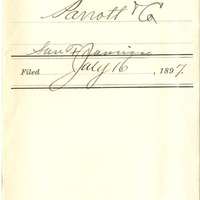 Parrott & Co.
San Francisco
Filed July 16, 1897.